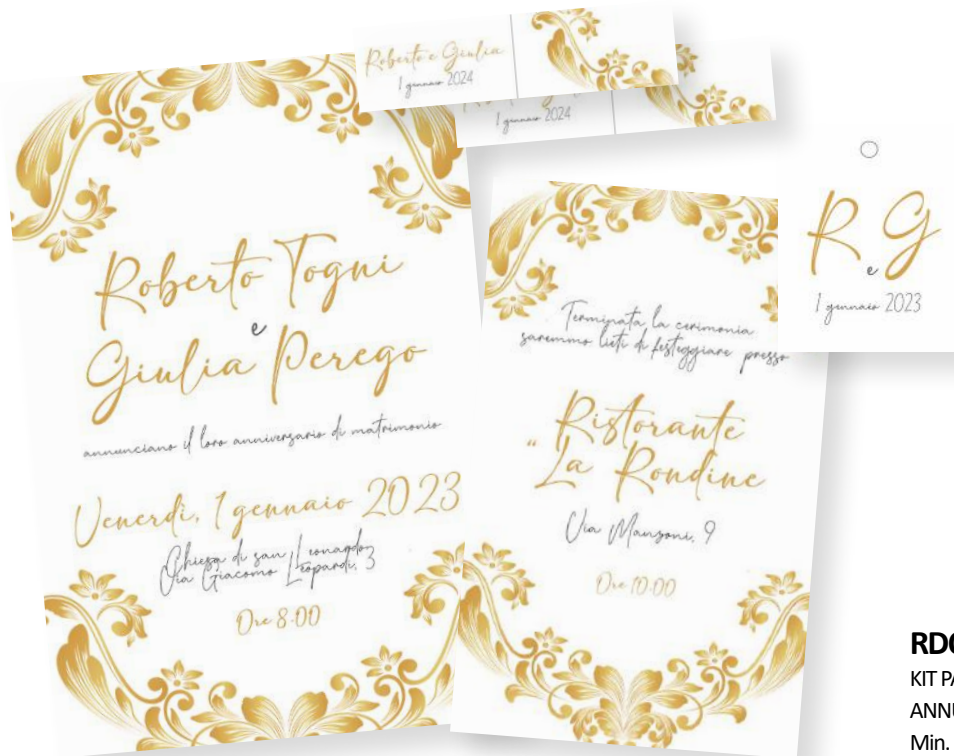 Roberto e Giulia
1 gennaio 2024
1 gennaio 2024
R e G
1 gennaio 2023
Roberto Togni
e
Giulia Perego
annunciano il loro anniversario di matrimonio
Venerdì, 1 gennaio 2023
Chiesa di san Leonardo
Via Giacomo Leopardi, 3
Ore 8.00
Terminata la cerimonia
saremmo lieti di festeggiare presso
Ristorante
"La Rondine
Via Manzoni, 9
Ore 10.00
KIT
Min.